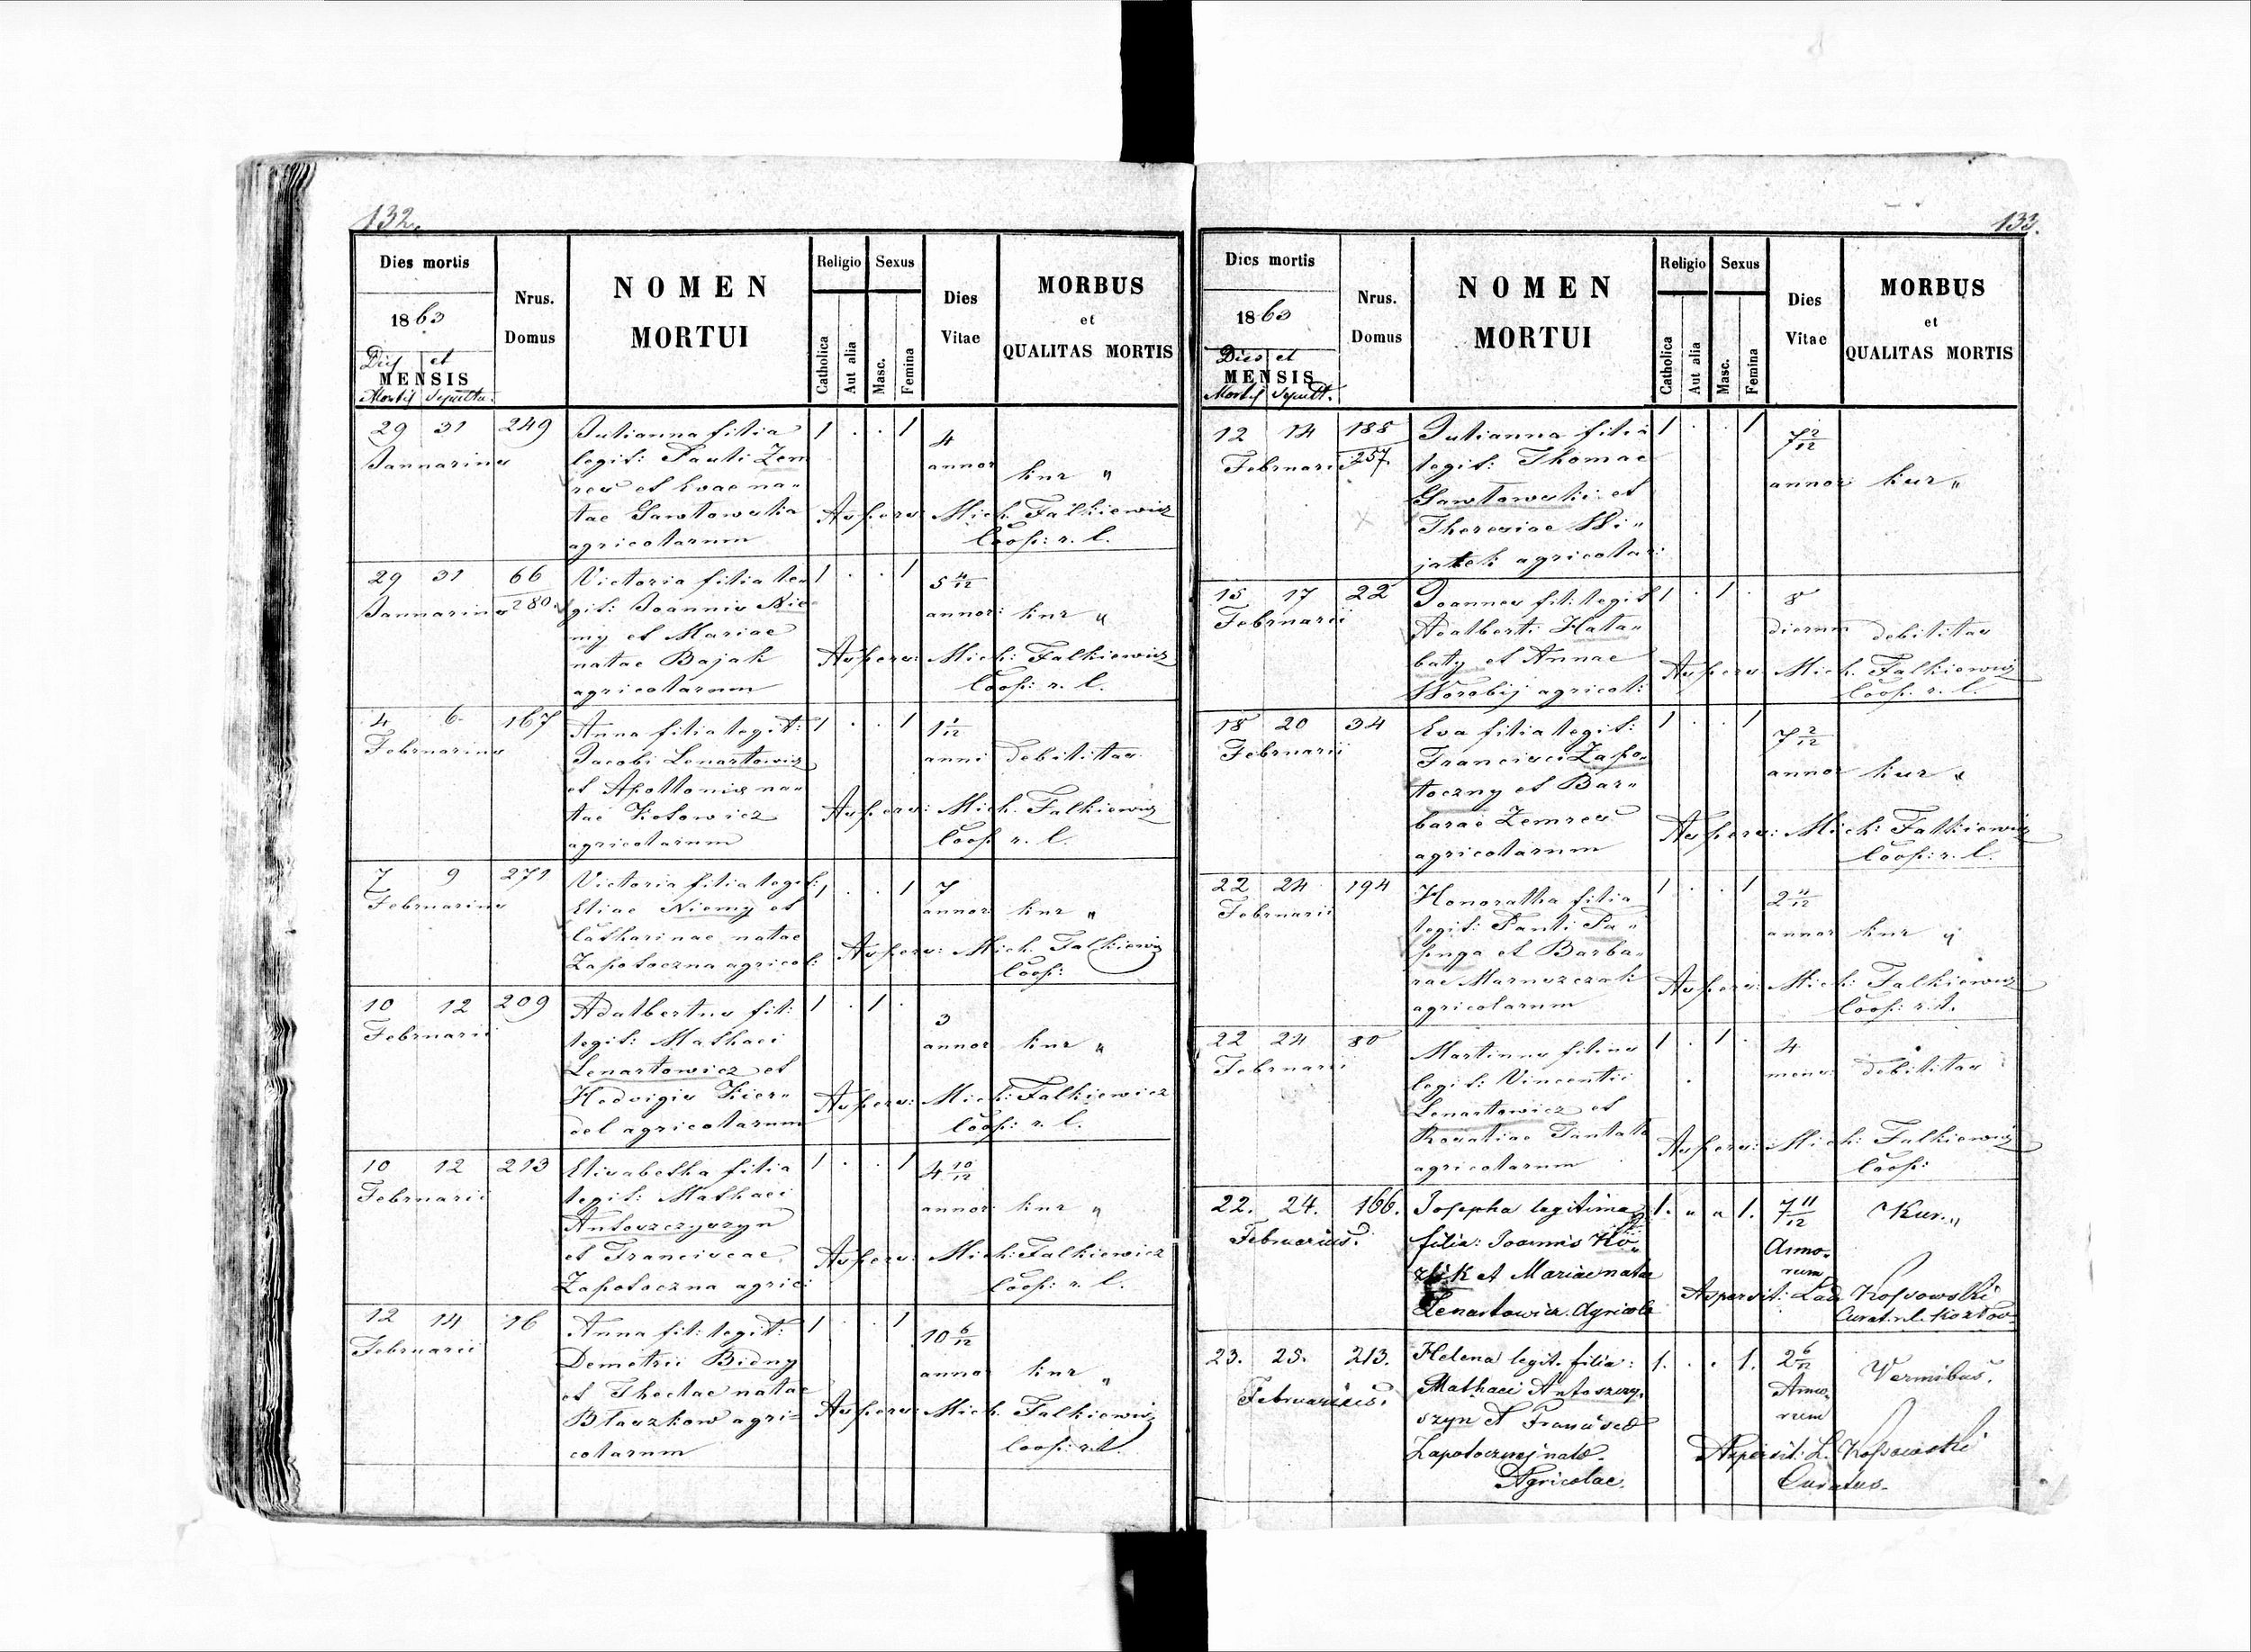 132.
Dies mortis
1863
Dies et
MENSIS
Mortis Sepultu.
Nrus. Domus
NOMEN MORTUI
Religio
Catholica
Aut alia
Sexus
Masc.
Femina
Dies Vitae
MORBUS
et
QUALITAS MORTIS
29 31 249 Julianna filia 1 . . 1 4
Januarius legit: Pauli Zem annor kur "
res et Evae na"
tae Gawłowska Aspers: Mich. Falkiewicz
agricolarum Coop: r. l.
29 31 66 Victoria filia le 1 . . 1 5 4/12
Januarius 280. git: Joannis Nie annor: kur "
my et Mariae
natae Bajak Aspers: Mich: Falkiewicz
agricolarum Coop: r. l.
4 6 167 Anna filia legit: 1 . . 1 1 1/12
Februarius Jacobi Lenartowicz anni debilitas
et Apolloniae na"
tae Kotowicz Aspers: Mich. Falkiewicz
agricolarum Coop r. l.
7 9 271 Victoria filia legit: 1 . . 1 7
Februarius Eliae Niemy et annor: kur "
Catharinae natae Aspers: Mich. Falkiewicz
Zapotoczna agricol: Coop:
10 12 209 Adalbertus fil: 1 . 1 . 3
Februarii legit: Mathaei annor kur "
Lenartowicz et
Hedvigis Kier" Aspers: Mich: Falkiewicz
del agricolarum Coop: r. l.
10 12 213 Elisabetha filia 1 . . 1 4 10/12
Februarii legit: Mathaei annor: kur "
Antoszczyszyn
et Franciscae Aspers: Mich: Falkiewicz
Zapotoczna agric: Coop: r. l.
12 14 16 Anna fil: legit: 1 . . 1 10 6/12
Februarii Demetrii Biedny annor kur "
et Theclae natae
Błaszkow agri= Aspers: Mich. Falkiewicz
colarum Coop: r. l.
133.
Dies mortis
1863
Dies et
MENSIS
Mortis Sepult.
Nrus. Domus
NOMEN MORTUI
Religio
Catholica
Aut alia
Sexus
Masc.
Femina
Dies Vitae
MORBUS
et
QUALITAS MORTIS
12 14 188 Julianna filia 1 . . 1 7 2/12
Februarii 257. legit: Thomae annor kur "
Gawłowski et
Theresiae Wi"
jatek agricolar:
15 17 22 Joannes fil: legit 1 . 1 . 8
Februarii Adalberti Hała" dierum debilitas
baty et Annae Aspers: Mich. Falkiewicz
Worobij agricol: Coop. r. l.
18 20 34 Eva filia legit: 1 . . 1 7 2/12
Februarii Francisci Zapo" annor kur "
toczny et Bar"
barae Zemres Aspers: Mich: Falkiewicz
agricolarum Coop: r. l.
22 24 194 Honoratha filia 1 . . 1 2 4/12
Februarii legit: Pauli Pa" annor kur "
puga et Barba"
rae Maruszczak Aspers: Mich: Falkiewicz
agricolarum Coop: r. l.
22 24 80 Martinus filius 1 . 1 . 4
Februarii legit: Vincentii mens: debilitas
Lenartowicz et
Rosaliae Aspers: Mich: Falkiewicz
agricolarum Coop:
22. 24. 166. Josepha legitima 1. " " 1. 7 11/12 Kur. "
Februarius. filia: Joannis Ko" Anno-
zlik et Mariae natae rum
Lenartowicz. Agricolae Aspersit: Lad Kossowski
Curat. r.l. Kozłow
23. 25. 213. Helena legit. filia: 1. . . 1. 2 6/12 Vermibus.
Februarius. Mathaei Antoszczy- Anno-
szyn et Francisca rum
Zapotocznej nata. Aspersit: L. Kossowski
Agricolae. Curatus.